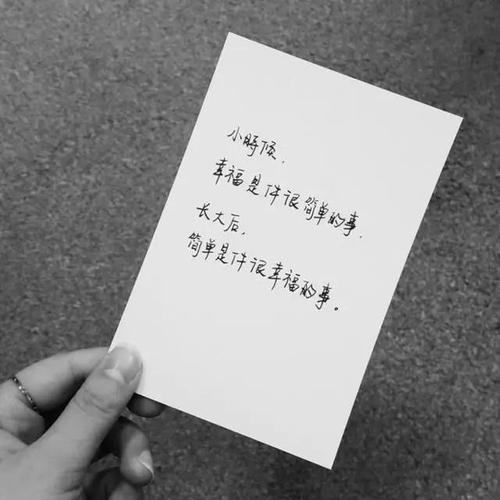 小時候,
幸福是件很简单的事.
长大后,
简单是件很幸福的事。